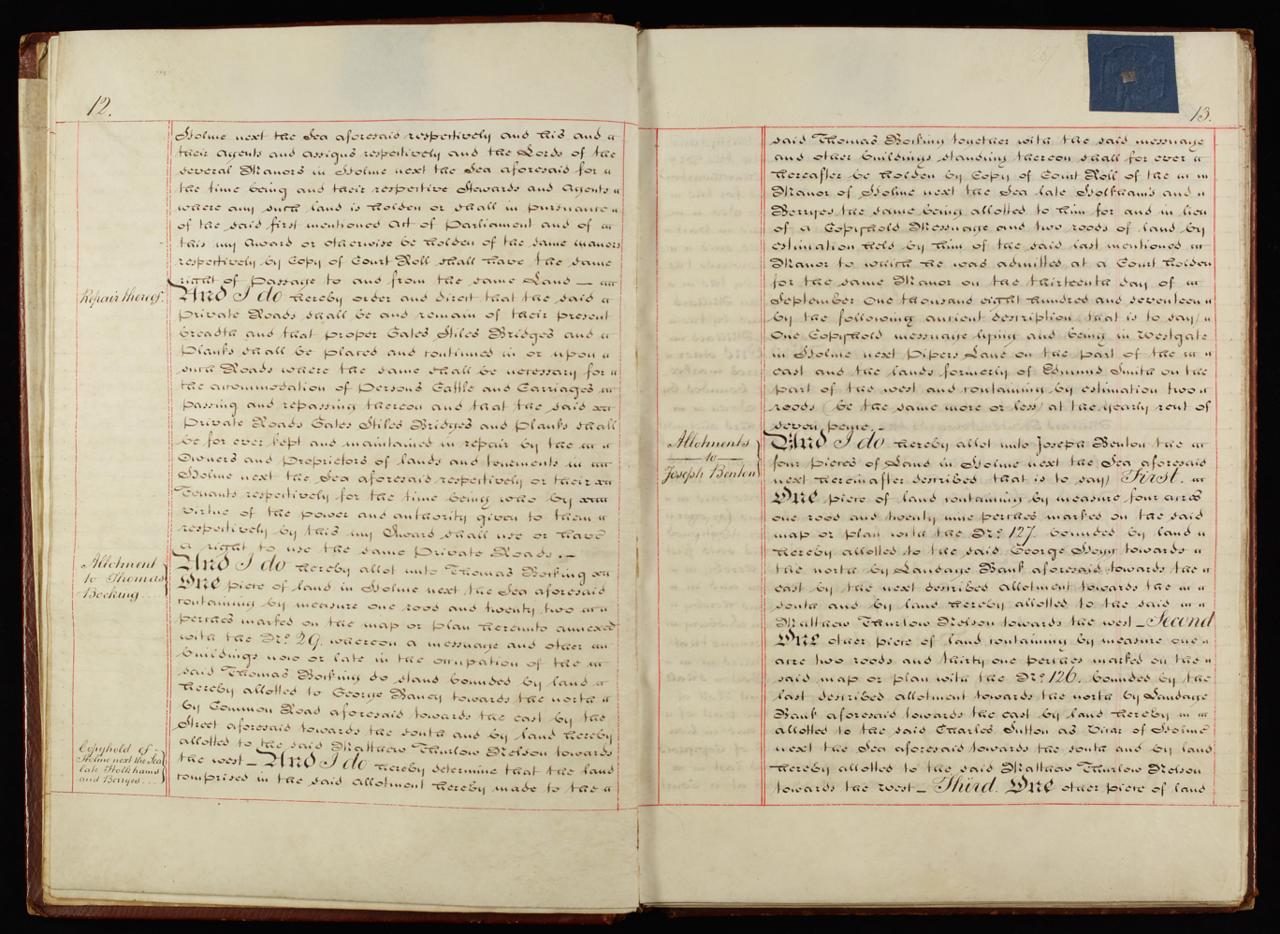 12.
Holme next the Sea aforesaid respectively and his and
their Agents and Assigns respectively and the Lords of the
several Manors in Holme next the Sea aforesaid for
the time being and their respective Stewards and Agents
where any such land is holden or shall in pursuance
of the said first mentioned Act of Parliament and of
this my Award or otherwise be holden of the same manors
respectively by Copy of Court Roll shall have the same
right of Passage to and from the same Land —
Repair thereof.
And I do hereby order and direct that the said
Private Roads shall be and remain of their present
breadth and that proper Gates Stiles Bridges and
Planks shall be placed and continued in or upon
such Roads where the same shall be necessary for
the accommodation of Persons Cattle and Carriages
passing and repassing thereon and that the said
Private Roads Gates Stiles Bridges and Planks shall
be for ever kept and maintained in repair by the
Owners and Proprietors of lands and tenements in
Holme next the Sea aforesaid respectively or their
Tenants respectively for the time being who by
virtue of the power and authority given to them
respectively by this my Award shall use or have
a right to use the same Private Roads. —
Allotment
to Thomas
Bocking....
And I do hereby allot unto Thomas Bocking
One piece of land in Holme next the Sea aforesaid
containing by measure one rood and twenty two
perches marked on the map or plan hereunto annexed
with the No. 29. whereon a messuage and other
buildings now or late in the occupation of the
said Thomas Bocking do stand bounded by land
hereby allotted to George Baney towards the north
by Common Road aforesaid towards the east by the
Street aforesaid towards the south and by land hereby
allotted to the said Matthew Thurlow Nelson towards
Copyhold of
Holme next the Sea
late Holkhams
and Berryes...
the west — And I do hereby determine that the land
comprised in the said allotment hereby made to the
13.
said Thomas Bocking together with the said messuage
and other buildings standing thereon shall for ever
hereafter be holden by Copy of Court Roll of the
Manor of Holme next the Sea late Holkham's and
Berryes the same being allotted to him for and in lieu
of a Copyhold Messuage and two roods of land by
estimation held by him of the said last mentioned
Manor to which he was admitted at a Court holden
for the same Manor on the thirteenth day of
September One thousand eight hundred and seventeen
by the following ancient description that is to say/
One Copyhold messuage lying and being in Westgate
in Holme next Pipers Lane on the part of the
east and the lands formerly of Edmund Smith on the
part of the west and containing by estimation two
roods (be the same more or less) at the yearly rent of
seven pence. —
Allotments
to
Joseph Benton
And I do hereby allot unto Joseph Benton the
four pieces of Land in Holme next the Sea aforesaid
next hereinafter described that is to say) First.
One piece of land containing by measure four acres
one rood and twenty nine perches marked on the said
map or plan with the No. 127. bounded by land
hereby allotted to the said George Hogg towards
the north by Landage Bank aforesaid towards the
east by the next described allotment towards the
south and by land hereby allotted to the said
Matthew Thurlow Nelson towards the west — Second
One other piece of land containing by measure one
acre two roods and thirty one perches marked on the
said map or plan with the No. 126. bounded by the
last described allotment towards the north by Landage
Bank aforesaid towards the east by land hereby
allotted to the said Charles Sutton as Vicar of Holme
next the Sea aforesaid towards the south and by land
hereby allotted to the said Matthew Thurlow Nelson
towards the west — Third. One other piece of land